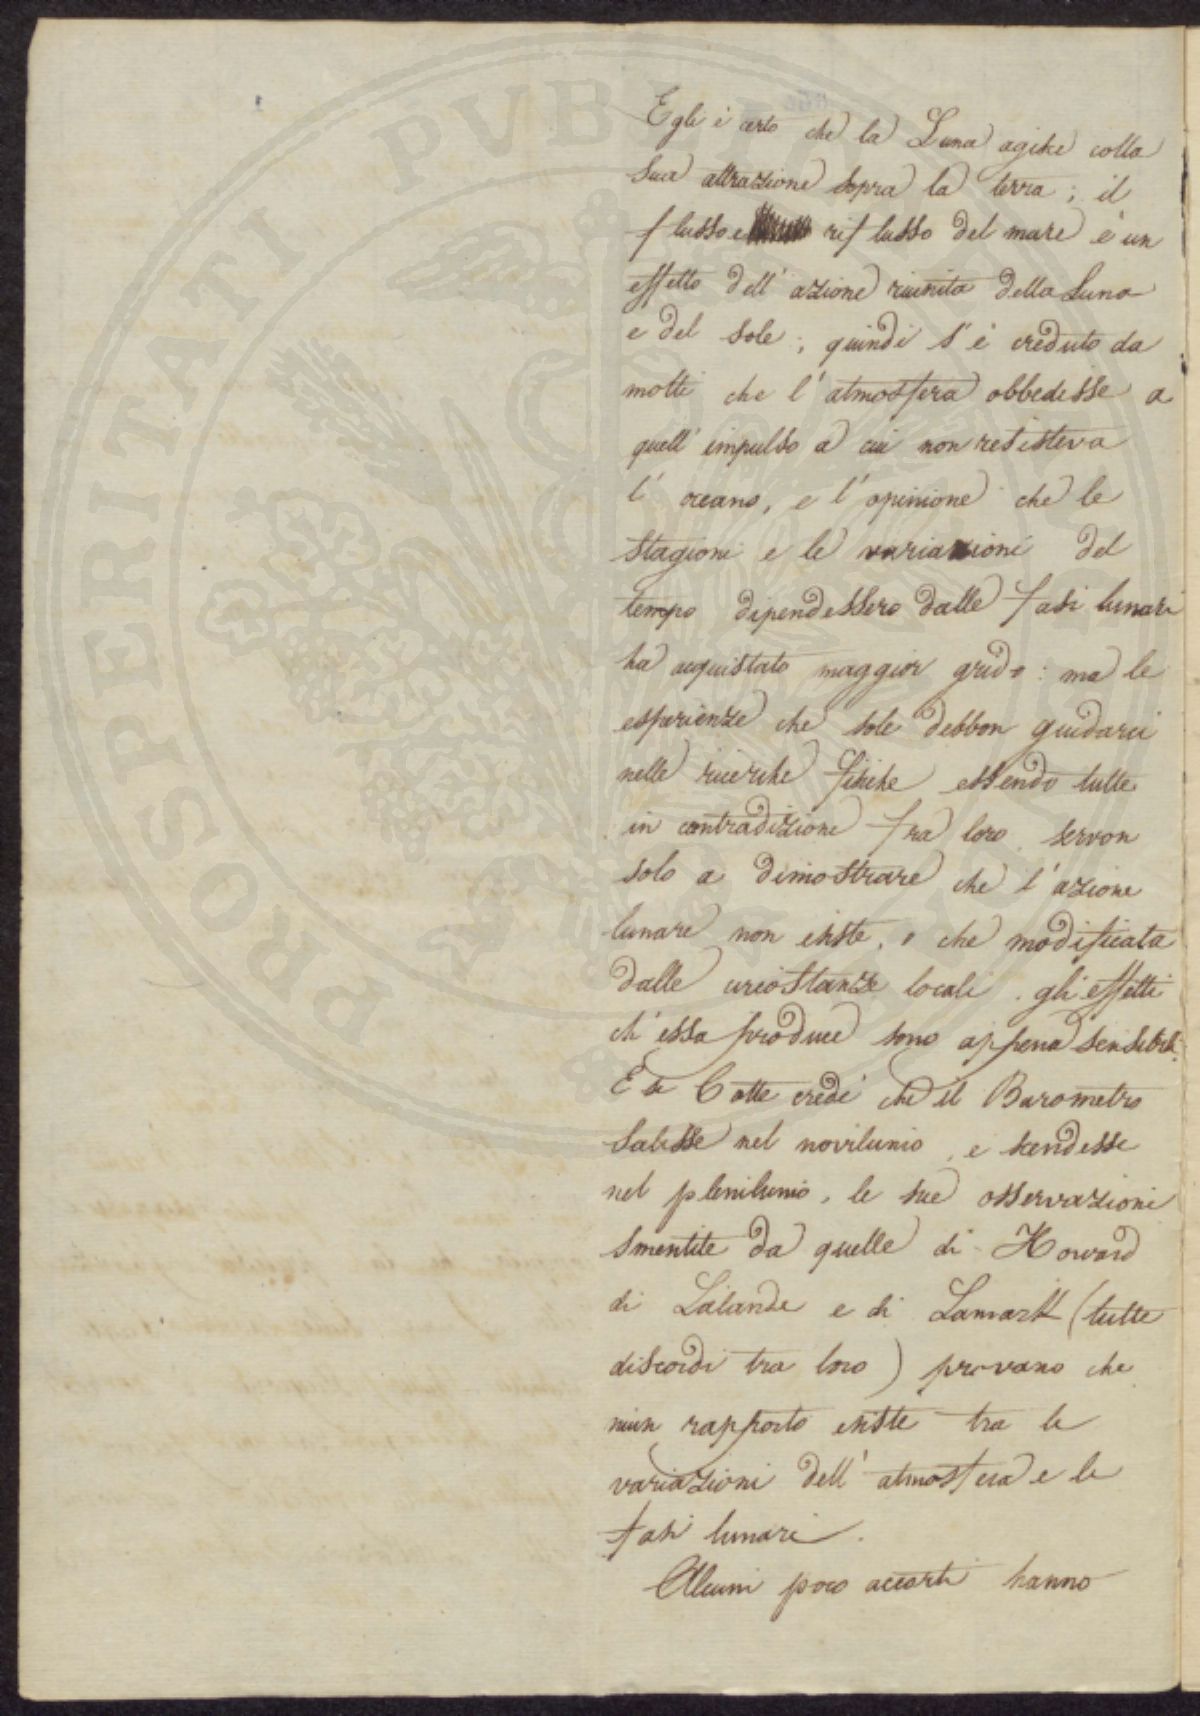 Egli è certo che la Luna agisce colla
sua attrazione sopra la terra; il
flusso e riflusso del mare è un
effetto dell'azione riunita della Luna
e del sole; quindi s'è creduto da
molti che l'atmosfera obbedisse a
quell'impulso a cui non resisteva
l'oceano, e l'opinione che le
stagioni e le variazioni del
tempo dipendessero dalle fasi lunari
ha acquistato maggior grido: ma le
esperienze che sole debbon guidarci
nelle ricerche fisiche essendo tutte
in contradizione fra loro servon
solo a dimostrare che l'azione
lunare non esiste, o che modificata
dalle circostanze locali gli effetti
ch'essa produce sono appena sensibili.
E se Cotte credé che il Barometro
salisse nel novilunio, e scendesse
nel plenilunio, le sue osservazioni
smentite da quelle di Howard
di Lalande e di Lamark (tutte
discordi tra loro) provano che
niun rapporto esiste tra le
variazioni dell'atmosfera e le
fasi lunari.
Alcuni poco accorti hanno
PROSPERITATI PUBLICAE